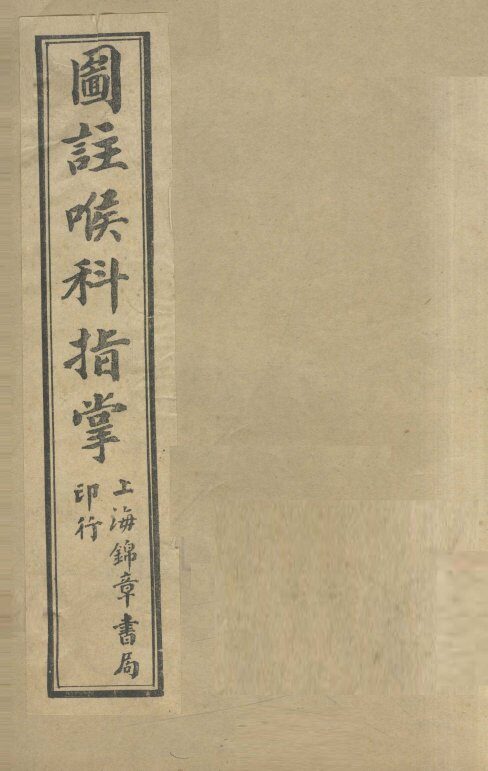 圖註喉科指掌
上海錦章書局
印行